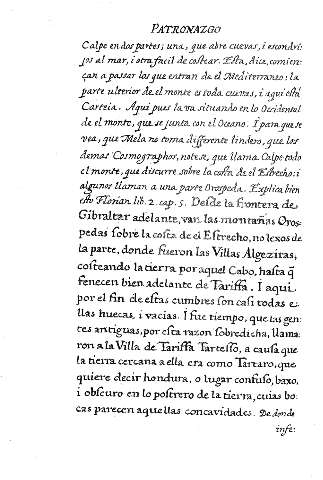 PATRONAZGO
Calpe en dos partes; una, que abre cuevas, i escondri-
jos al mar, i otra facil de costear. Esta, dice, comien-
çan a passar los que entran de el Mediterraneo: la
parte ulterior de el monte es toda cuevas, i aqui està
Carteia. Aqui pues la va situando en lo Occidental
de el monte, que se junta con el Oceano. I para que se
vea, que Mela no toma differente lindero, que los
demas Cosmographos, notese, que llama Calpe todo
el monte, que discurre sobre la costa de el Estrecho: i
algunos llaman a una parte Orospeda. Explica bien
esto Florian lib. 2. cap. 5. Desde la frontera de
Gibraltar adelante, van las montañas Oros-
pedas sobre la costa de el Estrecho, no lexos de
la parte, donde fueron las Villas Algeziras,
costeando la tierra por aquel Cabo, hasta q̃
fenecen bien adelante de Tariffa. I aqui
por el fin de estas cumbres son casi todas e-
llas huecas, i vacias. I fue tiempo, que las gen-
tes antiguas, por esta razon sobredicha, llama-
ron a la Villa de Tariffa Tartesso, a causa que
la tierra cercana a ella era como Tartaro, que
quiere decir hondura, o lugar confuso, baxo,
i obscuro en lo postrero de la tierra, cuias bo-
cas parecen aquellas concavidades. De donde
infe: